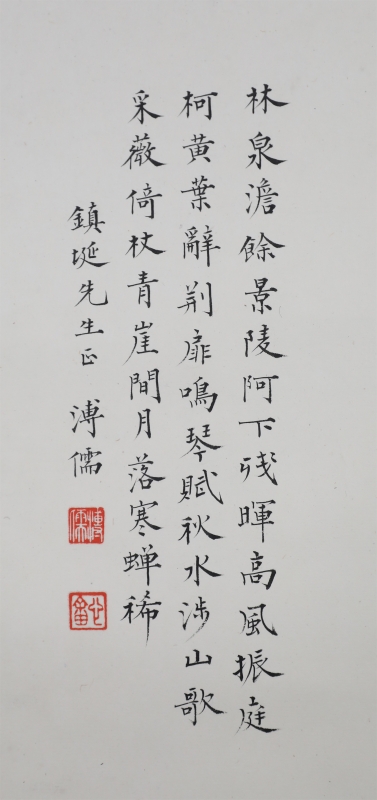 林泉澹餘景陵阿下殘暉高風振庭
柯黃葉辭荆扉鳴琴賦秋水涉山歌
采薇倚杖青崖間月落寒蟬稀
鎮埏先生正 溥儒
溥儒